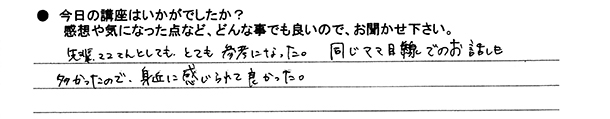 ● 今日の講座はいかがでしたか?
感想や気になった点など、どんな事でも良いので、お聞かせ下さい。
先輩ママさんとしても、とても参考になった。 同じママ目線でのお話しも
多かったので、身近に感じられて良かった。